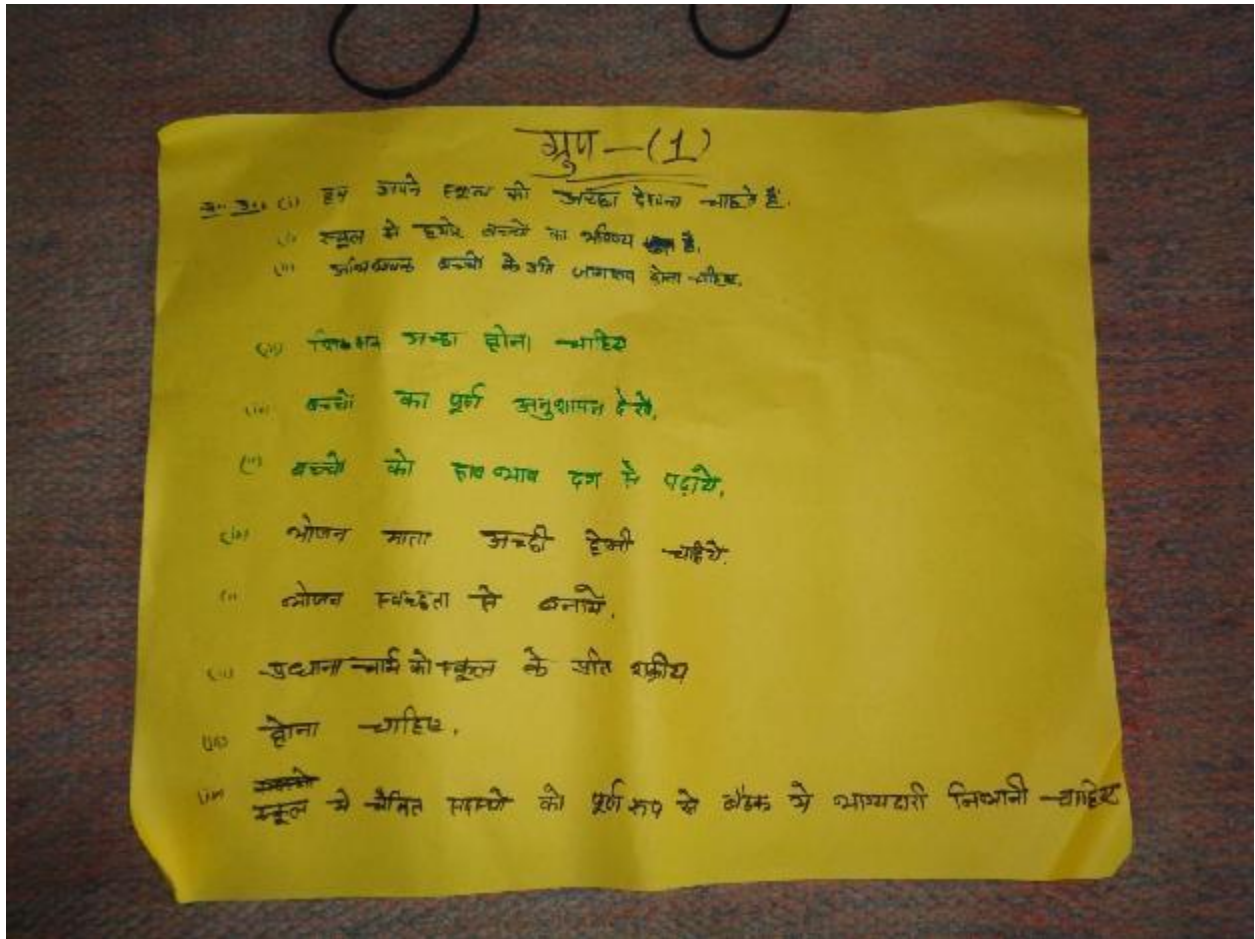 ग्रुप — (1)
(i) हम अपने स्कूल को अच्छा देखना चाहते हैं.
स्कूल से हमारे बच्चों का भविष्य है.
बच्चों के प्रति जागरूप होना चाहिए.
अच्छा होना चाहिए
बच्चों का पूर्ण अनुशासन देखे,
बच्चो को हाव भाव ढग से पढ़ाये,
भोजन माता अच्छी होनी चाहिये.
भोजन स्वच्छता से बनाये,
प्रधानाचार्य को स्कूल के प्रति शक्रीय
होना चाहिए.
स्कूल मे सदस्यो को पूर्ण रूप से बैठक मे भाग्यदारी निभानी चाहिए